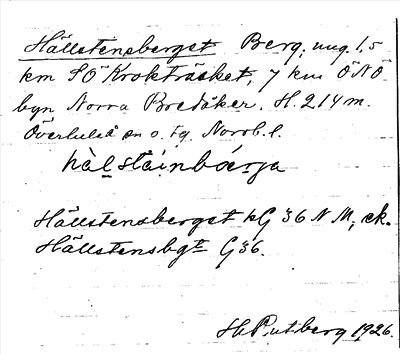 Hällstensberget Berg, ung. 1,5
km SÖ Krokträsket, 7 km ÖNÖ
byn Norra Bredåker. H. 214 m.
Överluleå sn o. tg. Norrb. l.
hälstäinbärja
Hällstensberget kG 36 N M, ek.
Hällstensbgt G 36.
1926.